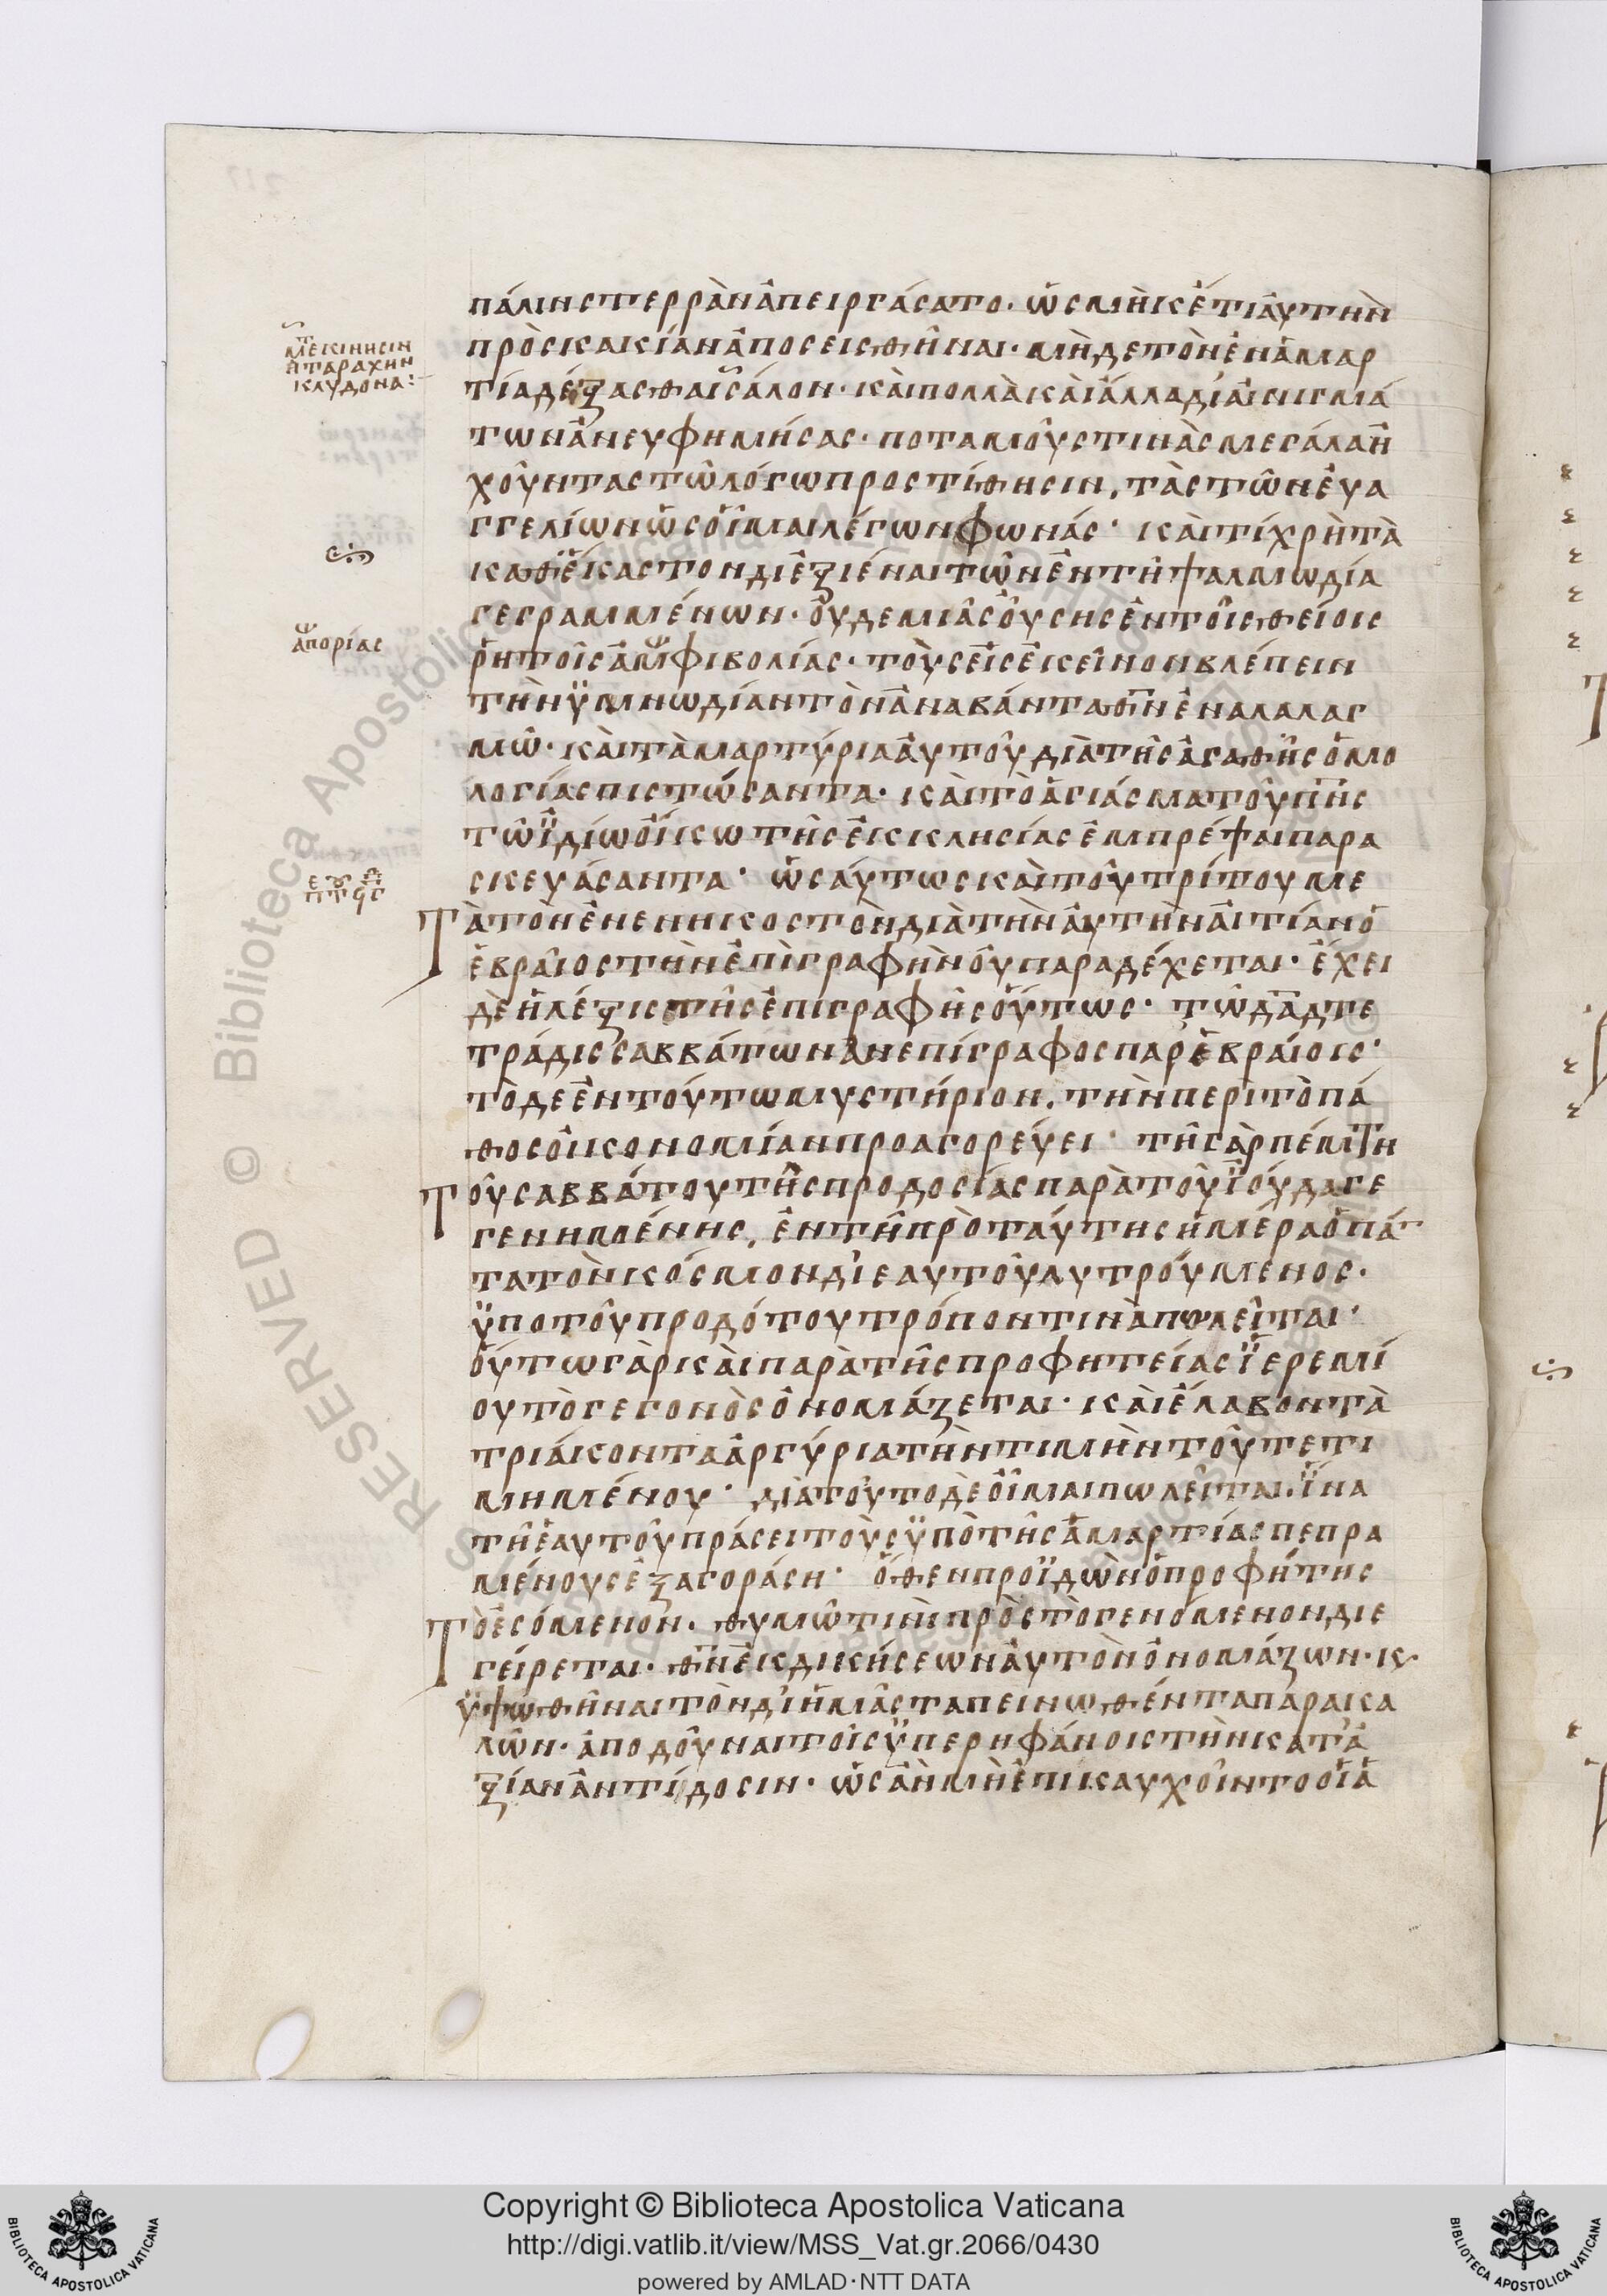 πάλιν στερρὰν ἀπειργάσατο· ὡς μὴκέτι ἀυτὴν
πρὸς κακίαν ἀποσεισθῆναι· μὴ δὲ τὸν ἐν ἁμαρ
τία δέξασθαι σάλον· καὶ πολλὰ καὶ ἄλλα δι' ἀινιγμά
των ἀνευφημήσας· ποταμούς τινὰς μεγάλα ἠ
χοῦντας τῶ λόγω προστίθησιν, τὰς τῶν ἐυα
γγελίων ὡς οἶμαι λέγων φωνάς· καὶ τί χρὴ τὰ
καθέκαστον διεξιέναι τῶν ἐν τῆ ψαλμωδία
γεγραμμένων· ὀυδεμιᾶς ὀύσης ἐν τοῖς θείοις
ῥητοῖς ἀμφιβολίας· τοὺς εἰς ἐκεῖνον βλέπειν
τὴν ὑμνωδίαν τὸν ἀναβάντα θν ἐν αλαλαγ
μῶ· καὶ τὰ μαρτύρια ἀυτοῦ διὰ τῆς ἀγαθῆς ὁμο
λογίας πιστώσαντα· καὶ τὸ ἁγίασμα τοῦ πνς
τῶ ϊδίω οἴκω τῆς ἐκκλησίας ἐμπρέψαι παρα
σκευάσαντα· ὡσάυτως καὶ τοῦ τρίτου με
τὰ τὸν ἐνεννικοστὸν διὰ τὴν ἀυτὴν ἀιτίαν ὁ
ἑβραῖος τὴν ἐπιγραφὴν ὀυ παραδέχεται· ἔχει
δὲ ἡ λέξις τῆς ἐπιγραφῆς ὅυτως· τῶ δαδ τε
τράδι σαββάτων ανεπίγραφος παρ' ἑβραίοις·
τὸ δε ἐν τούτω μυστήριον, τὴν περὶ τὸ πά
θος ὀικονομίαν προαγορεύει· τῆ γὰρ πέμπτη
τοῦ σαββάτου τῆς προδοσίας παρὰ τοῦ ϊούδα γε
γενημένης, ἐν τῆ πρὸ ταύτης ἡμέρα ὁ πάν
τα τὸν κόσμον δι' εαυτοῦ λυτρούμενος·
ὑπο τοῦ προδότου τρόπον τινὰ πωλεῖται·
ὅυτω γὰρ καὶ παρὰ τῆς προφητείας ϊερεμί
ου τὸ γεγονὸς ὀνομάζεται· καὶ ἔλαβον τὰ
τριάκοντα ἀργύρια τὴν τιμὴν τοῦ τετι
μημένου· διατοῦτο δὲ οἶμαι πωλεῖται. ϊνα
τῆ ἑαυτοῦ πράσει τοὺς ὑπὸ τῆς ἁμαρτίας πεπρα
μένους ἐξαγοράση· ὅθεν προϊδὼν ὁ προφήτης
τὸ ἐσόμενον. θυμῶ τινι πρὸς τὸ γενόμενον διε
γείρεται· θν ἐκδικήσεων ἀυτὸν ὀνομάζων· κ
ὑψωθῆναι τὸν δι' ἡμᾶς ταπεινωθέντα παρακα
λῶν· ἀποδοῦναι τοῖς ὑπερηφάνοις τὴν κατ' ἀ
ξίαν ἀντίδοσιν· ὡς ἂν μὴ ἐπικαυχοῖντο οἷα
μετεκίνησιν
ἢ ταραχὴν
κλύδονα:
ἀπορίας
Copyright © Biblioteca Apostolica Vaticana
http://digi.vatlib.it/view/MSS_Vat.gr.2066/0430
powered by AMLAD·NTT DATA